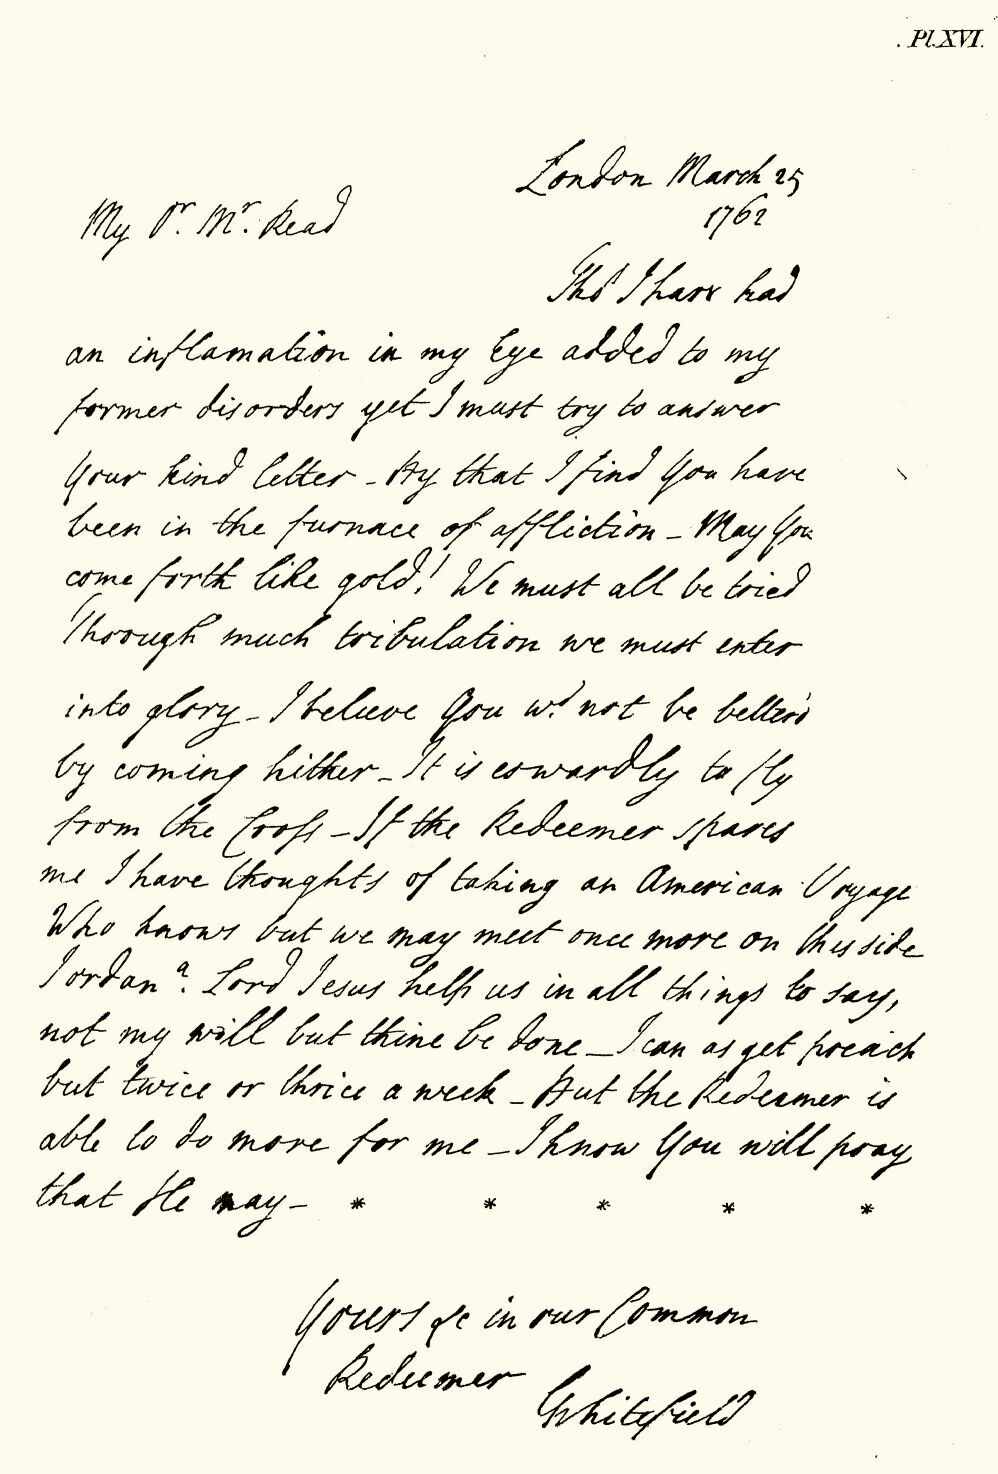 Pl. XVI.
London March 25
1762
My Dr. Mr. Read
Tho' I have had
an inflamation in my Eye added to my
former disorders yet I must try to answer
Your kind letter - By that I find You have
been in the furnace of affliction - May You
come forth like gold! We must all be tried
Through much tribulation we must enter
into glory - I believe You wd. not be better'd
by coming hither - It is cowardly to fly
from the Cross - If the Redeemer spares
me I have thoughts of taking an American Voyage
Who knows but we may meet once more on this side
Jordan. Lord Jesus help us in all things to say,
not my will but thine be done - I can as yet preach
but twice or thrice a week - But the Redeemer is
able to do more for me - I know You will pray
that He may - * * * * *
Yours &c in our Common
Redeemer
GWhitefield